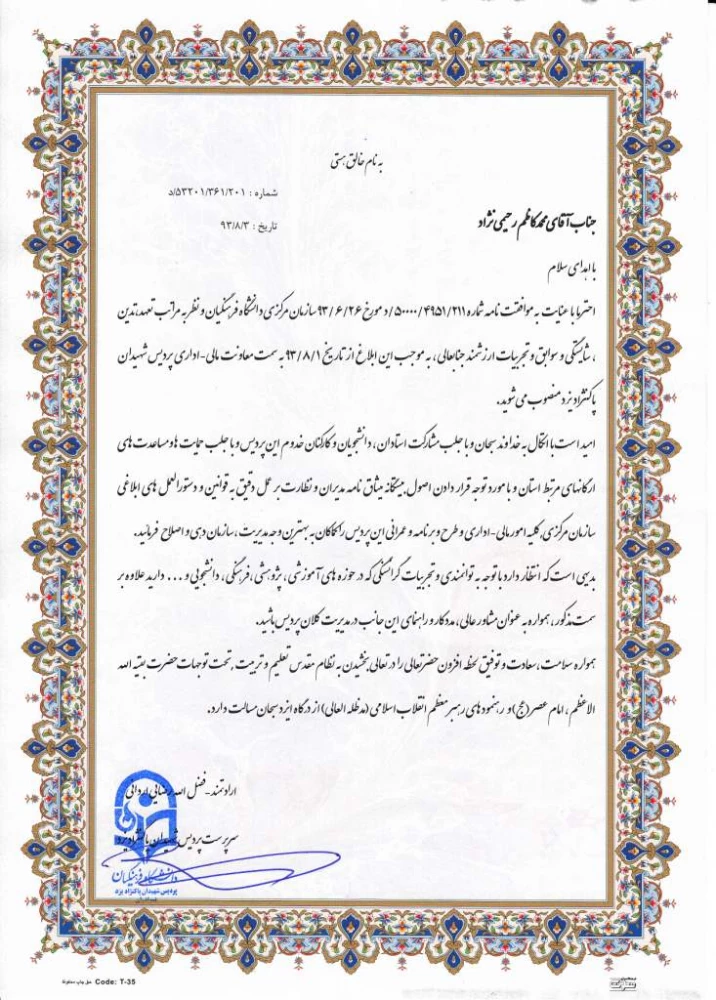 به نام خالق هستی
شماره : ۵۳۲۰۱/۳۶۱/۲۰۱/د
تاریخ : ۹۳/۸/۳
جناب آقای محمدکاظم رحیمی نژاد
با اهدای سلام
احتراما با عنایت به موافقت نامه شماره ۵۰۰۰۰/۴۹۵۱/۲۱۱/د مورخ ۹۳/۶/۲۶ سازمان مرکزی دانشگاه فرهنگیان و نظر به مراتب تعهد، تدین
، شایستگی و سوابق و تجربیات ارزشمند جنابعالی، به موجب این ابلاغ از تاریخ ۹۳/۸/۱ به سمت معاونت مالی-اداری پردیس شهیدان
پاکنژاد یزد منصوب می شوید.
امید است با اتکال به خداوند سبحان و با جلب مشارکت استادان، دانشجویان و کارکنان خدوم این پردیس و با جلب حمایت ها و مساعدت های
ارگانهای مرتبط استان و با مورد توجه قرار دادن اصول بیستگانه میثاق نامه مدیران و نظارت بر عمل دقیق به قوانین و دستورالعمل های ابلاغی
سازمان مرکزی، کلیه امور مالی-اداری و طرح و برنامه و عمرانی این پردیس را کماکان به بهترین وجه مدیریت، سازمان دهی و اصلاح فرمائید.
بدیهی است که انتظار دارد با توجه به توانمندی و تجربیات گرانسنگی که در حوزه های آموزشی، پژوهشی، فرهنگی، دانشجویی و... دارید علاوه بر
سمت مذکور، همواره به عنوان مشاور عالی، مددکار و راهنمای این جانب در مدیریت کلان پردیس باشید.
همواره سلامت، سعادت و توفیق لحظه افزون حضرتعالی را در تعالی بخشیدن به نظام مقدس تعلیم و تربیت , تحت توجهات حضرت بقیه الله
الاعظم، امام عصر(عج) و رهنمودهای رهبر معظم انقلاب اسلامی (مدظله العالی) از درگاه ایزد سبحان مسالت دارد.
ارادتمند-فضل الله رضایی اردانی
سرپرست پردیس شهیدان پاکنژاد یزد
دانشگاه فرهنگیان
پردیس شهیدان پاکنژاد یزد
Code: T-35